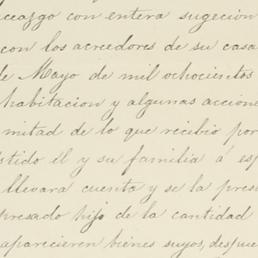 con entera sugecion
con los acreedores de su casa
de Mayo de mil ochocientos
habitacion y algunas accione
mitad de lo que recibio por
stido él y su familia á es
llevara cuenta y se la pres
presado hijo de la cantidad
aparecieren bienes suyos, despue